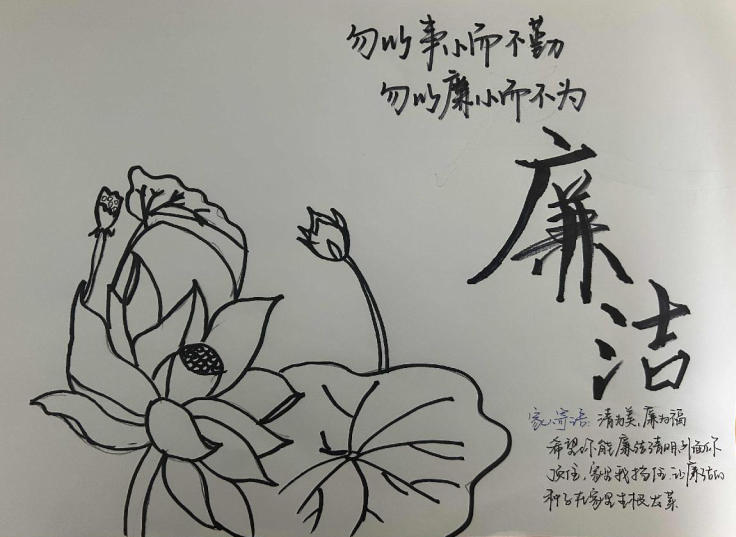 勿以事小而不勤
勿以廉小而不为
廉
洁
家人寄语: 清为美,廉为福
希望你能廉洁清明,外面你
顶住,家里我挡住.让廉洁的
种子在家里生根发芽